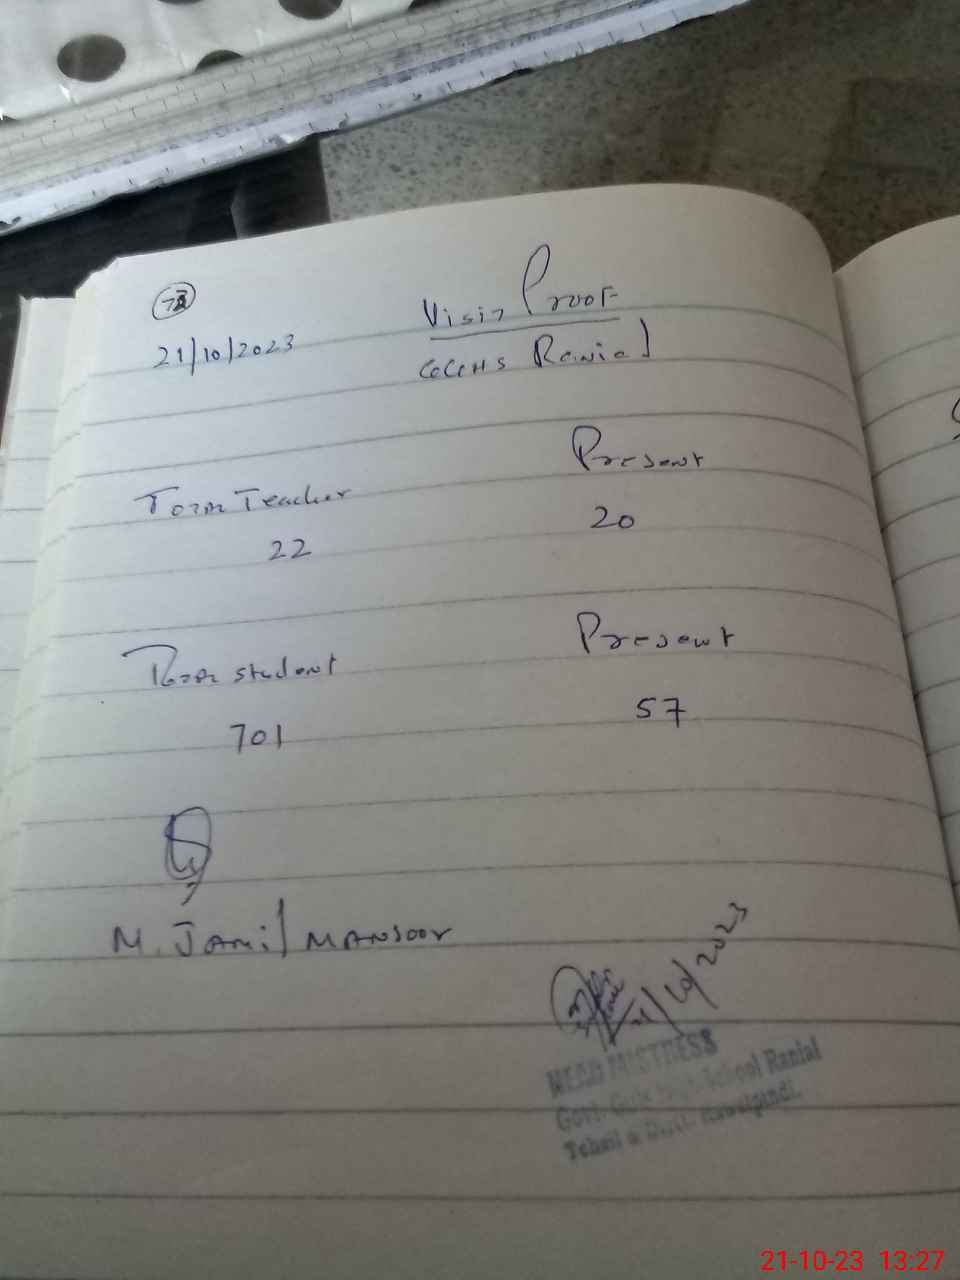 78
Visit Proof
21/10/2023
GGHS Ranial
Total Teacher Present
22 20
Total student Present
701 57
M. Jamil MANSOOR
21/10/2023
HEAD MISTRESS
Govt. Girls High School Ranial
Tehsil & Distt. Rawalpindi.
21-10-23 13:27